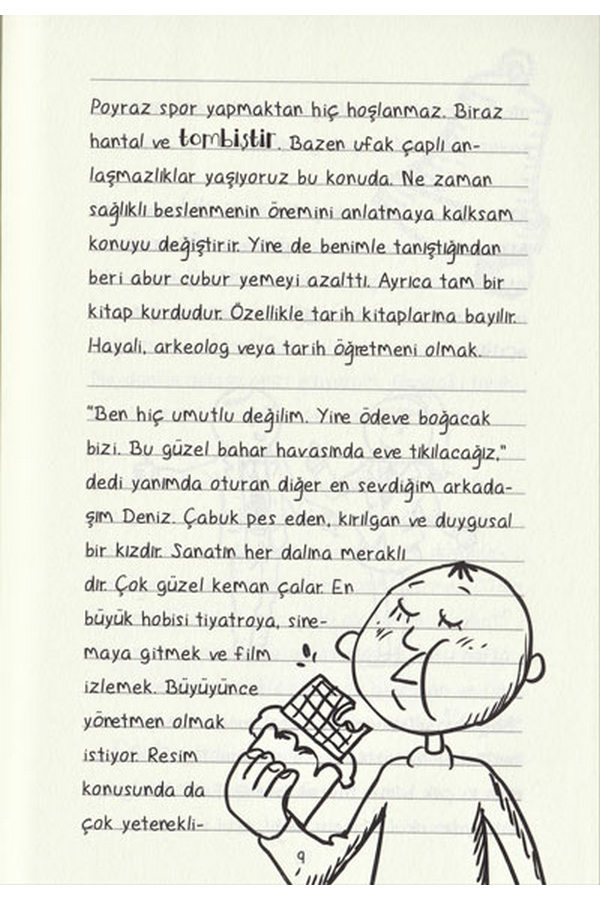 Poyraz spor yapmaktan hiç hoşlanmaz. Biraz
hantal ve tombiştir. Bazen ufak çaplı an-
laşmazlıklar yaşıyoruz bu konuda. Ne zaman
sağlıklı beslenmenin önemini anlatmaya kalksam
konuyu değiştirir. Yine de benimle tanıştığından
beri abur cubur yemeyi azalttı. Ayrıca tam bir
kitap kurdudur. Özellikle tarih kitaplarına bayılır.
Hayali, arkeolog veya tarih öğretmeni olmak.
"Ben hiç umutlu değilim. Yine ödeve boğacak
bizi. Bu güzel bahar havasında eve tıkılacağız,"
dedi yanımda oturan diğer en sevdiğim arkada-
şım Deniz. Çabuk pes eden, kırılgan ve duygusal
bir kızdır. Sanatın her dalına meraklı
dır. Çok güzel keman çalar. En
büyük hobisi tiyatroya, sine-
maya gitmek ve film
izlemek. Büyüyünce
yönetmen olmak
istiyor. Resim
konusunda da
çok yetenekli-
9